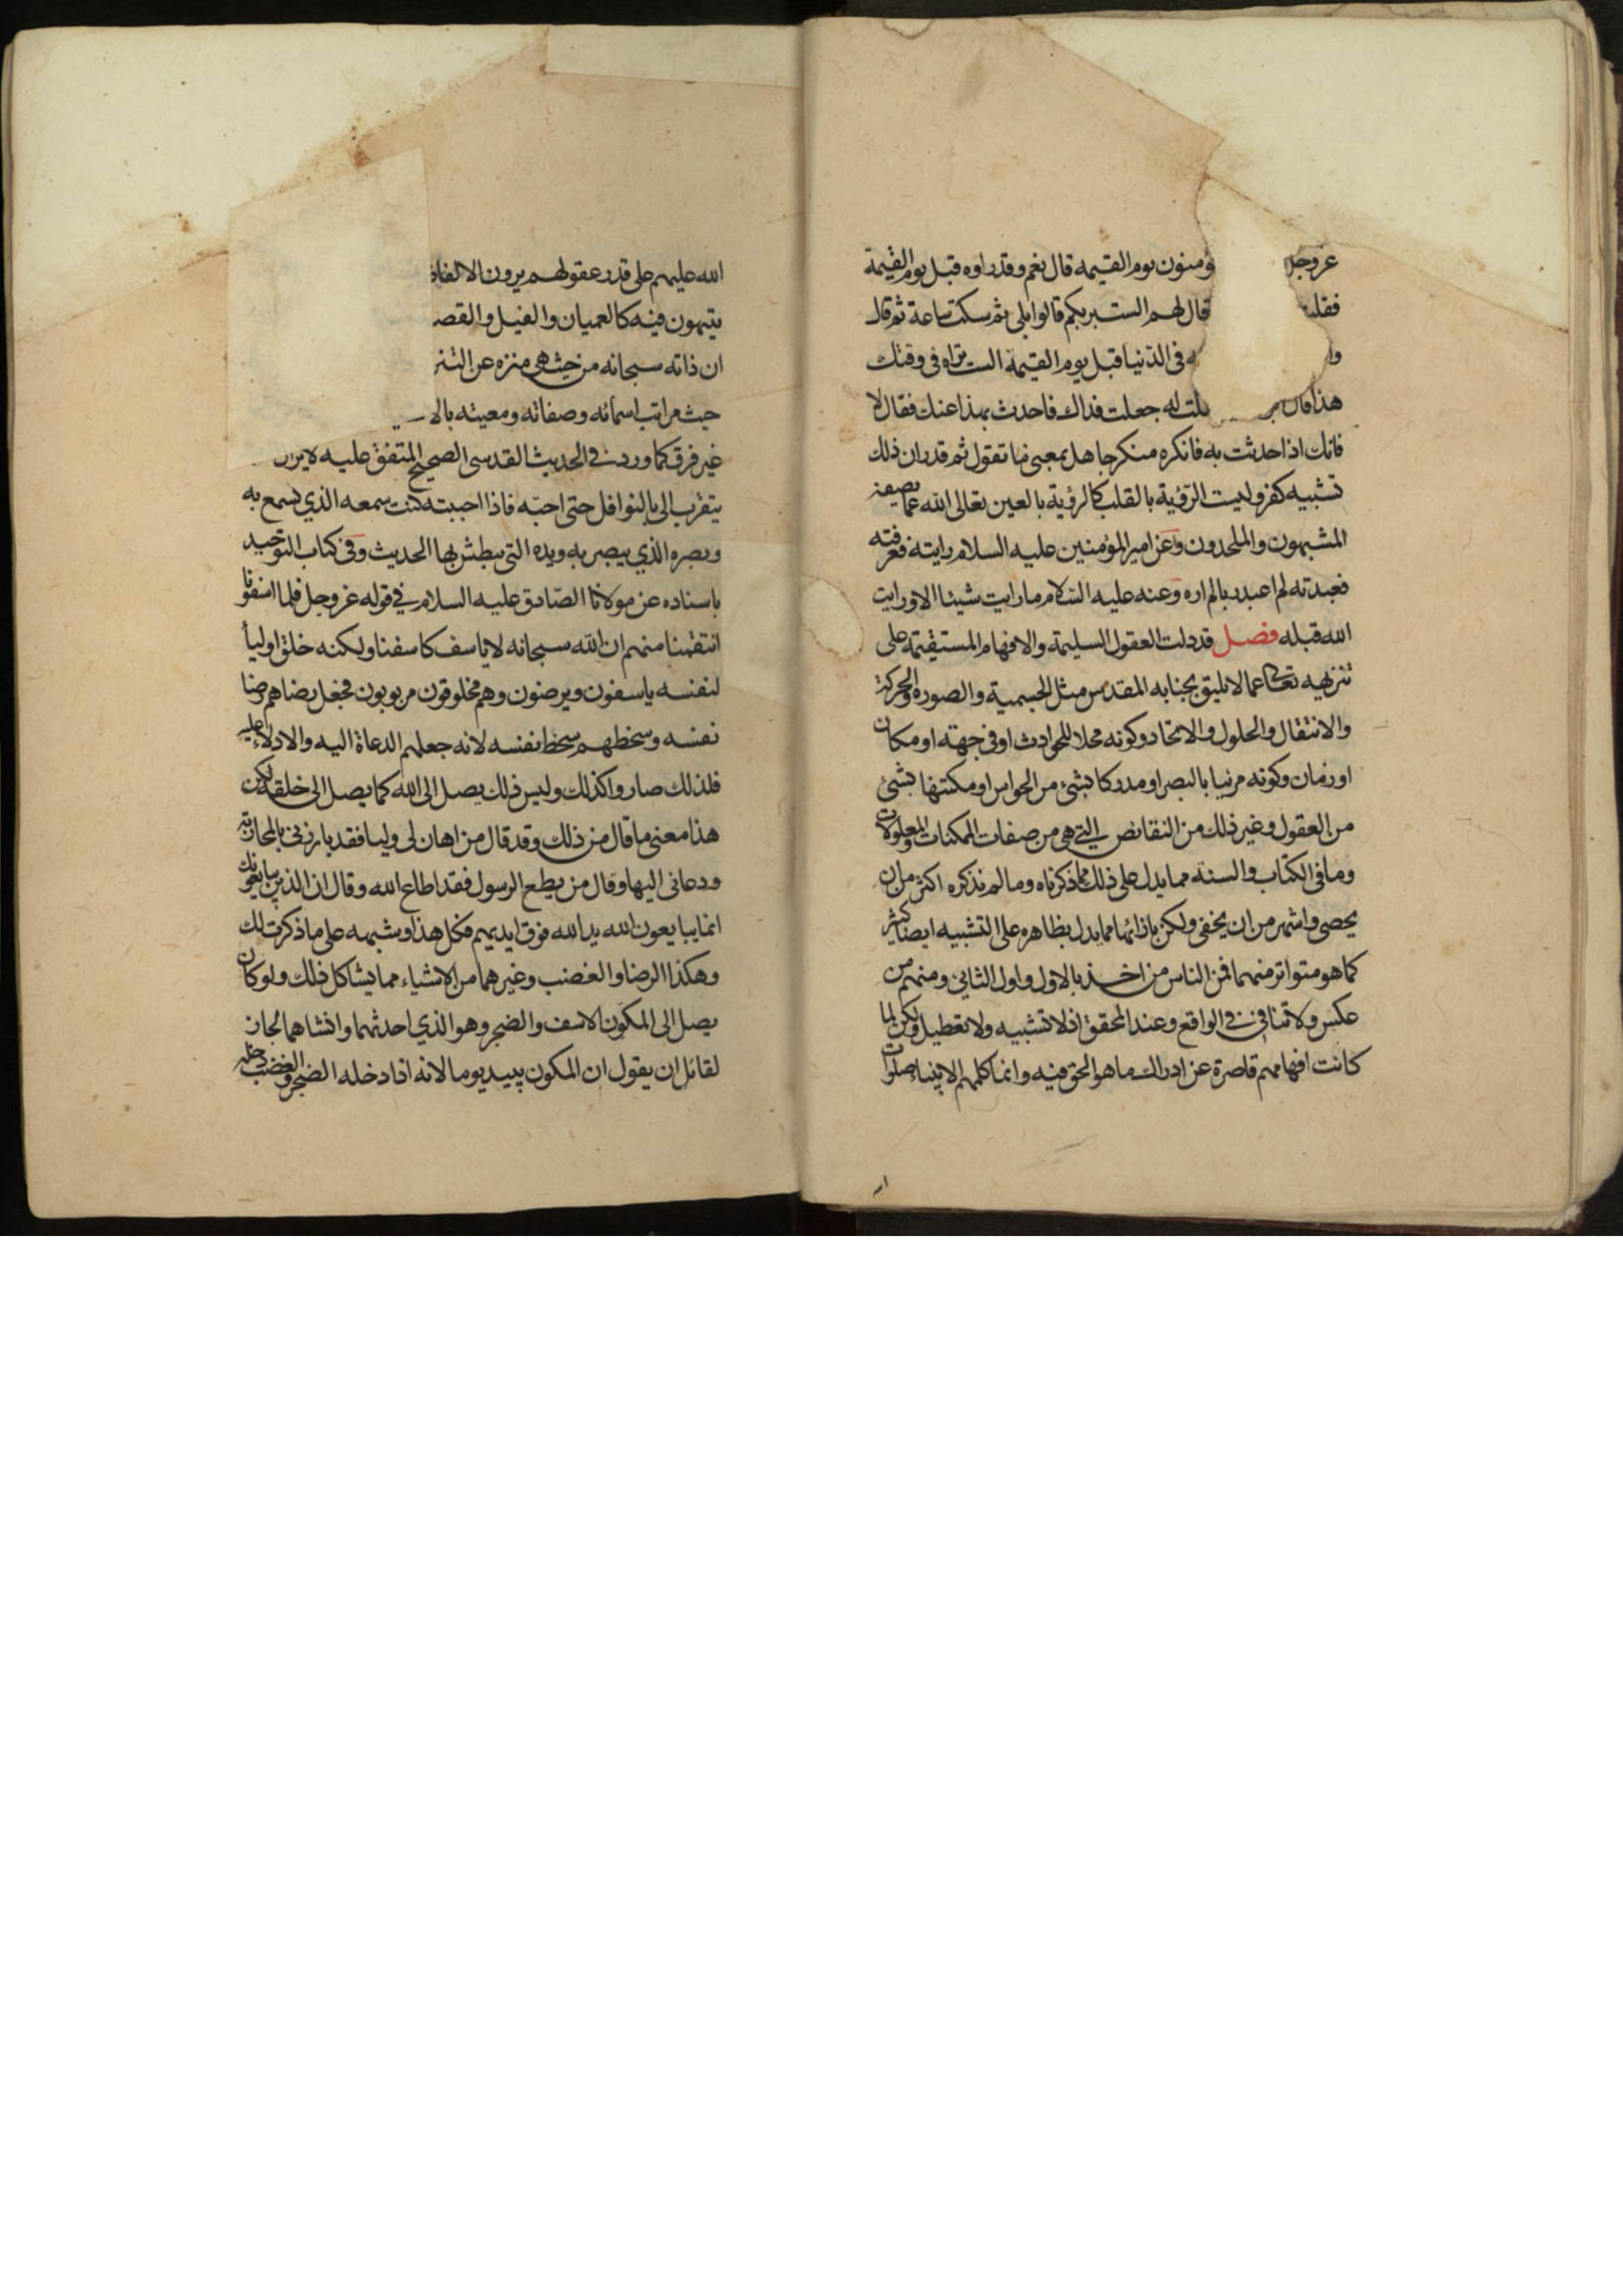 عز وجل ؤمنون يوم القيمة قال نعم وقد راوه قبل يوم القيمة
فقلت قال لهم الست بربكم قالوا بلى ثم سكت ساعة ثم قال
وا ه فى الدنيا قبل يوم القيمة الست تراه فى وقتك
هذا قال لت له جعلت فداك فاحدث بهذا عنك فقال لا
فانك اذا حدثت به فانكره منكر جاهل بمعنى ما تقول ثم قدر ان ذلك
تشبيه كفر وليست الرؤية بالقلب كالرؤية بالعين تعالى الله عما يصفه
المشبهون والملحدون وعن امير المؤمنين عليه السلام رايته فعرفته
فعبدته لم اعبد ربا لم اره وعنه عليه السلام ما رايت شيئا الا ورايت
الله قبله فصل قد دلت العقول السليمة والافهام المستقيمة على
تنزيهه تعالى عما لا يليق بجنابه المقدس مثل الجسمية والصورة والحركة
والانتقال والحلول والاتحاد وكونه محلا للحوادث او فى جهة او مكان
او زمان وكونه مرئيا بالبصر او مدركا بشئ من الحواس او مكتنها بشئ
من العقول وغير ذلك من النقائص التى هى من صفات الممكنات والمعلولات
وما فى الكتاب والسنة مما يدل على ذلك مما ذكرناه وما لم نذكره اكثر من ان
يحصى واشهر من ان يخفى ولكن بازائها مما يدل بظاهره على التشبيه ايضا كثير
كما هو متواتر منهما فمن الناس من اخذ بالاول واول الثانى ومنهم من
عكس ولا تنافى فى الواقع وعند المحقق اذ لا تشبيه ولا تعطيل ولكن لما
كانت افهامهم قاصرة عن ادراك ما هو الحق فيه وانما كلمهم الانبياء صلوات
الله عليهم على قدر عقولهم يرون الالفاظ
يتيهون فيه كالعميان والفيل والقصه
ان ذاته سبحانه من حيث هى منزه عن التنز
حيث مراتب اسمائه وصفاته ومعيته بالا
غير فرق كما ورد فى الحديث القدسى الصحيح المتفق عليه لا يزال
يتقرب الى بالنوافل حتى احبه فاذا احببته كنت سمعه الذي يسمع به
وبصره الذي يبصر به ويده التى يبطش بها الحديث وفى كتاب التوحيد
باسناده عن مولانا الصادق عليه السلام في قوله عز وجل فلما اسفونا
انتقمنا منهم ان الله سبحانه لا ياسف كاسفنا ولكنه خلق اولياء
لنفسه ياسفون ويرضون وهم مخلوقون مربوبون فجعل رضاهم رضا
نفسه وسخطهم سخط نفسه لانه جعلهم الدعاة اليه والادلاء عليه
فلذلك صاروا كذلك وليس ذلك يصل الى الله كما يصل الى خلقه لكن
هذا معنى ما قال من ذلك وقد قال من اهان لى وليا فقد بارزنى بالمحاربة
ودعانى اليها وقال من يطع الرسول فقد اطاع الله وقال ان الذين يبايعونك
انما يبايعون الله يد الله فوق ايديهم فكل هذا وشبهه على ما ذكرت لك
وهكذا الرضا والغضب وغيرهما من الاشياء مما يشاكل ذلك ولو كان
يصل الى المكون الاسف والضجر وهو الذي احدثهما وانشاهما لجاز
لقائل ان يقول ان المكون يبيد يوما لانه اذا دخله الضجر والغضب دخله